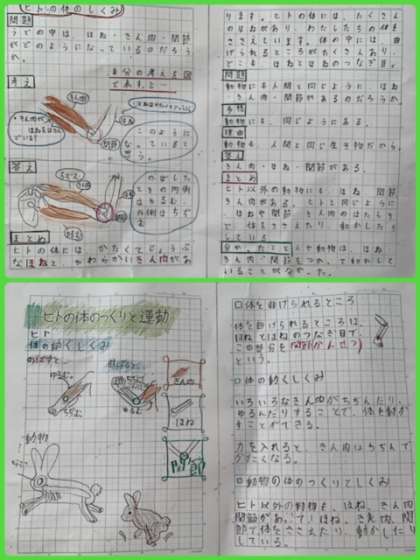 ヒトの体のしくみ
問題
うでの中は、ほね・きん肉・関節
がどのようになっているのだろう
か。
考え
自分の考える図
で表すと…
きん肉
ほね
関節
このように
なっていると
答え
ほね
関節
きん肉
まとめ
ヒトの体には、かたくてじょうぶ
なほねと、やわらかいきん肉があ
ります。ヒトの体には、たくさん
のほねがあり、わたしたちの体を
ささえています。体の中には、曲
げられるところがたくさんあり、
どこも、ほねとほねのつなぎ目。
問題
動物にも人間と同じように、ほね
、きん肉・関節があるのだろうか。
予想
動物にも、同じようにある。
理由
動物も、人間と同じ生き物だから。
答え
きん肉・ほね・関節がある。
まとめ
ヒト以外の動物にも、ほね、関節
、きん肉がある。ヒトと同じように、
ほねや関節、きん肉のはたらき
で、体をささえたり、動かしたり
している。
分かったこと
動物は、ほね、
きん肉・関節をつかって、動かして
いることがわかった。
ヒトの体のつくりと運動
ヒト
体の動くしくみ
のばすと
曲げると
ゆるむ
ちぢむ
きん肉
ほね
関節
動物
□体を曲げられるところ
体を曲げられるところは、
ほねとほねのつなぎ目で、
この部分を関節(かんせつ)
という。
□体の動くしくみ
いろいろなきん肉がちぢんだり、
ゆるんだりすることで、体を動か
すことができる。
力を入れると、きん肉はちぢんで
かたくなる。
□動物の体のつくりとしくみ
ヒト以外の動物も、ほね、きん肉、
関節があって、ほね、きん肉、関
節で体をささえたり、動かしたり
している。